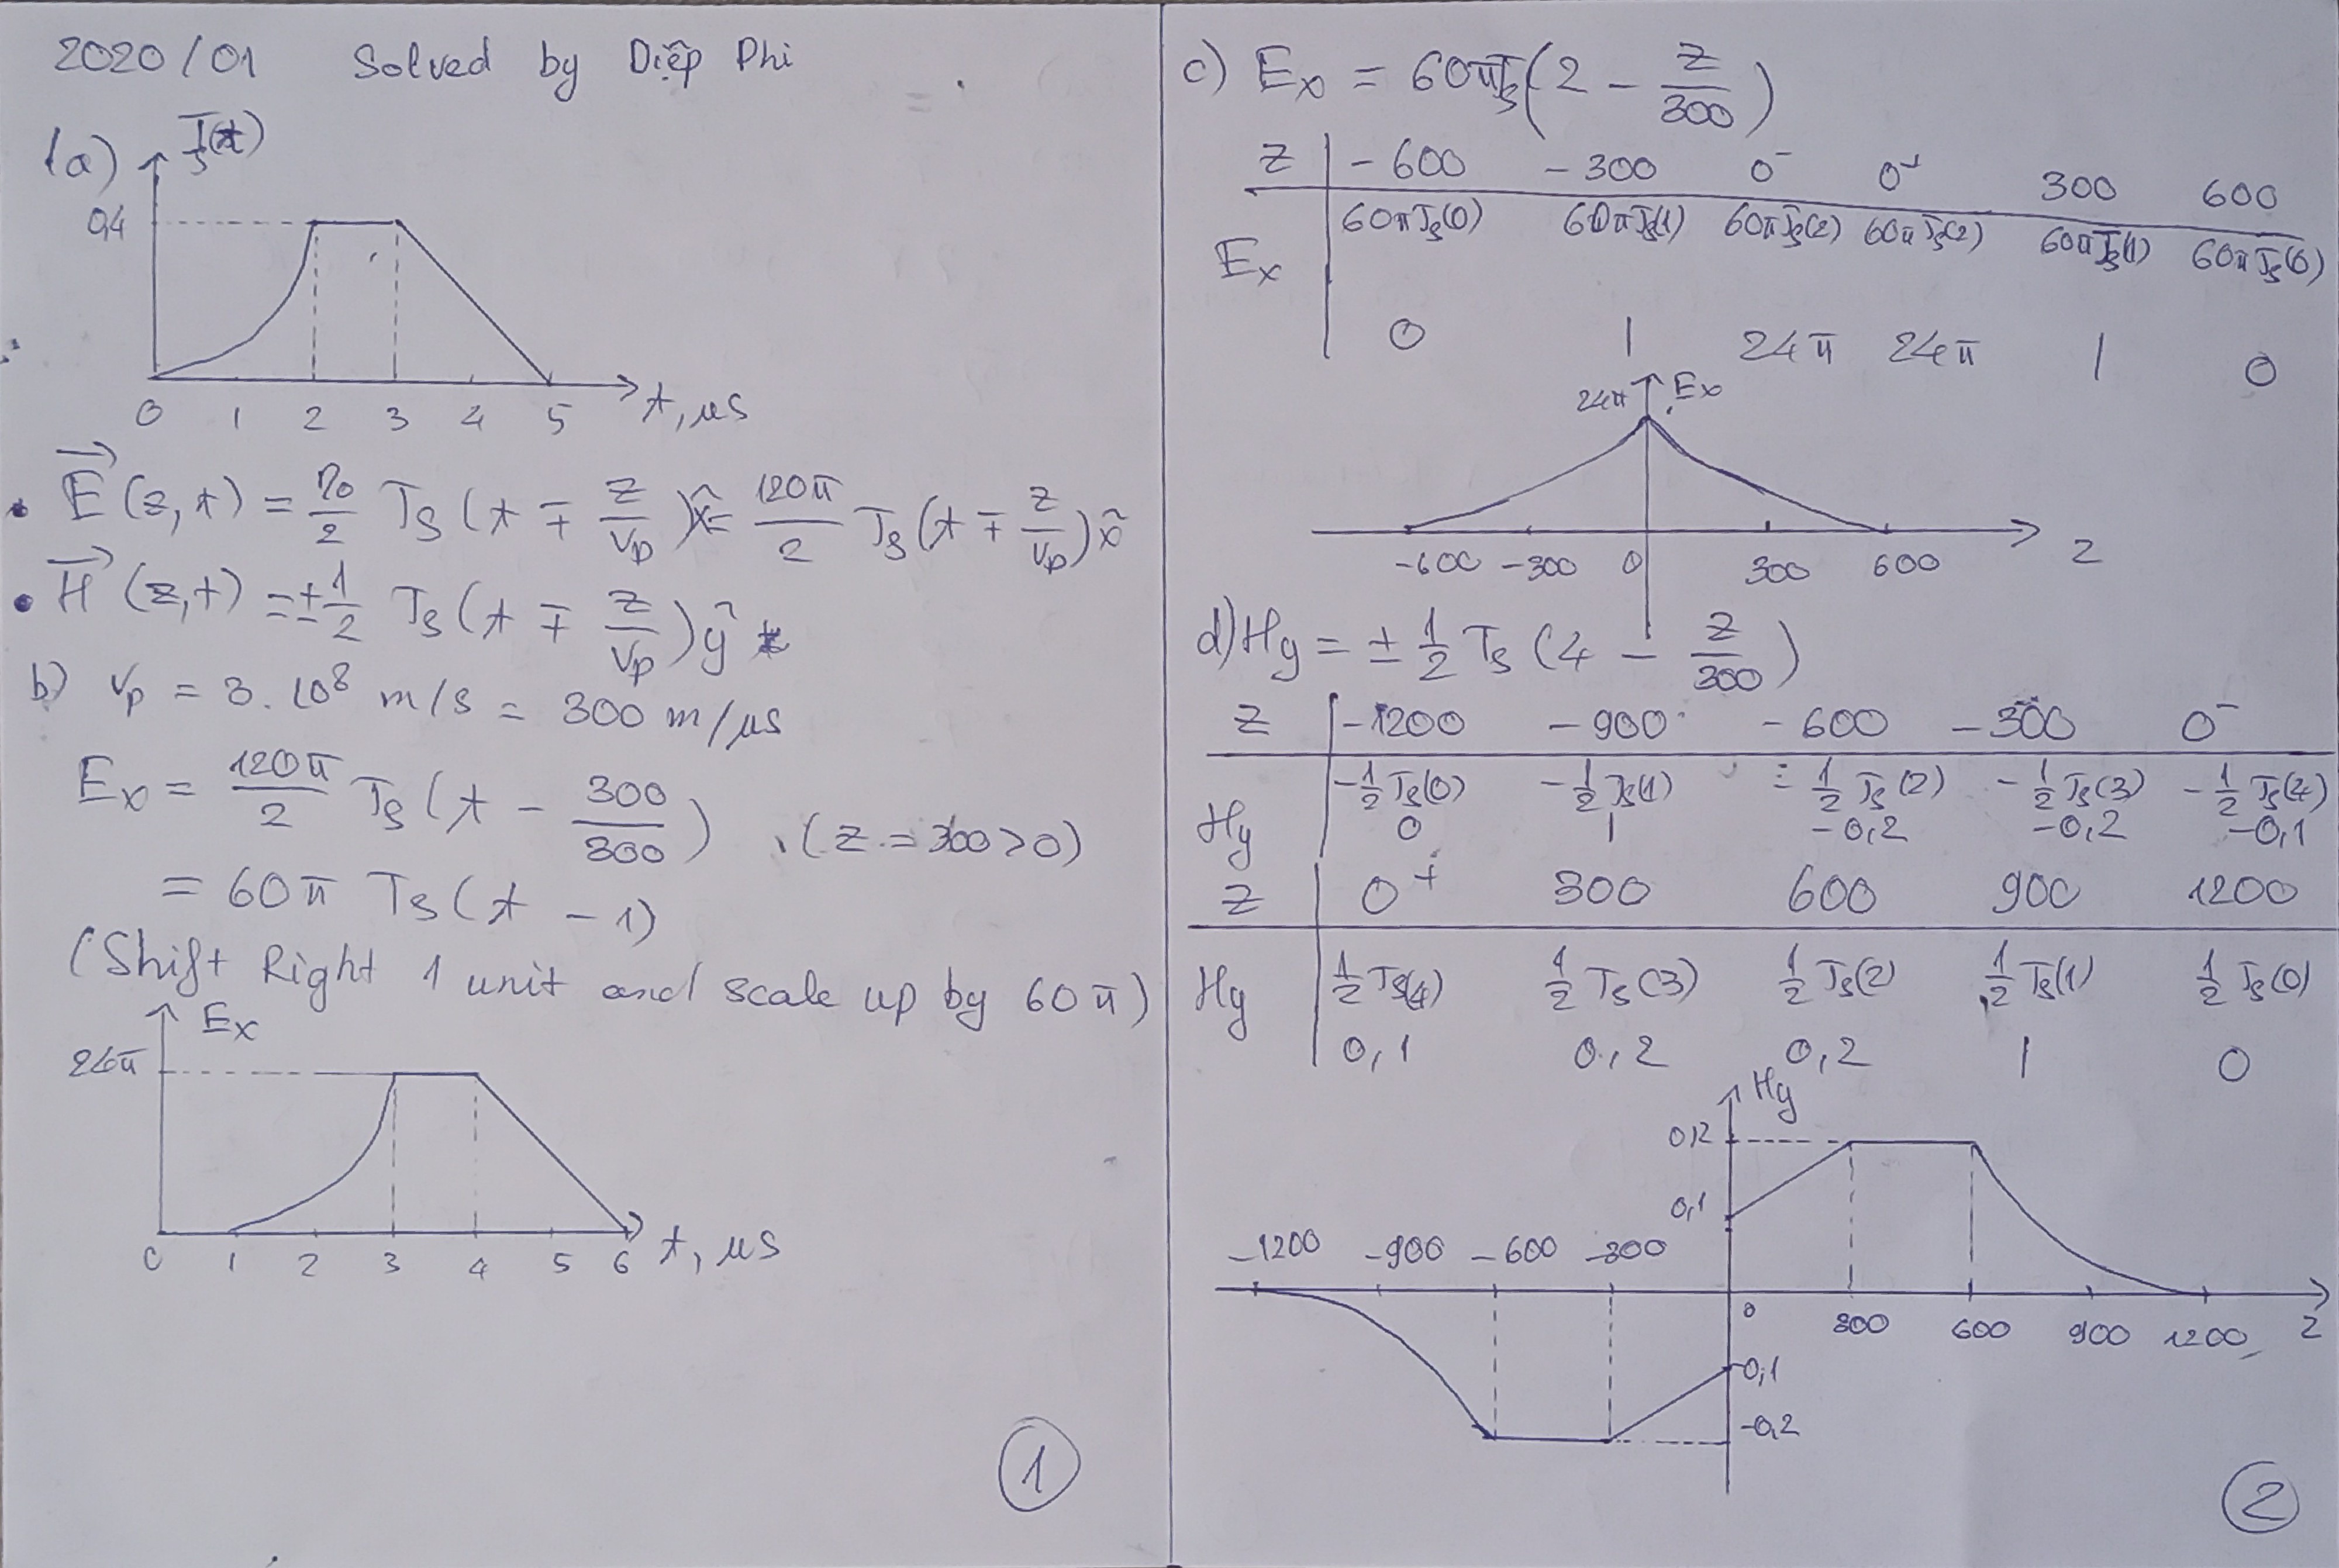 2020/01 Solved by Diệp Phi
1a) Js(t)
0,4
0 1 2 3 4 5 t, μs
• E⃗ (z,t) = η₀/2 Js (t ∓ z/vp) x̂ = 120π/2 Js (t ∓ z/vp) x̂
• H⃗ (z,t) = ± 1/2 Js (t ∓ z/vp) ŷ
b) vp = 3.10⁸ m/s = 300 m/μs
Ex = 120π/2 Js (t - 300/300) (z = 300 > 0)
= 60π Js (t - 1)
(Shift Right 1 unit and scale up by 60π)
Ex
24π
0 1 2 3 4 5 6 t, μs
1
c) Ex = 60π Js (2 - z/300)
z | -600 -300 0⁻ 0⁺ 300 600
Ex | 60πJs(0) 60πJs(1) 60πJs(2) 60πJs(2) 60πJs(1) 60πJs(0)
0 | 24π 24π | 0
24π Ex
-600 -300 0 300 600 z
d) Hy = ± 1/2 Js (4 - z/300)
z | -1200 -900 -600 -300 0⁻
Hy | -1/2 Js(0) -1/2 Js(1) -1/2 Js(2) -1/2 Js(3) -1/2 Js(4)
0 | -0,2 -0,2 -0,1
z | 0⁺ 300 600 900 1200
Hy | 1/2 Js(4) 1/2 Js(3) 1/2 Js(2) 1/2 Js(1) 1/2 Js(0)
0,1 0,2 0,2 | 0
Hy
0,2
0,1
-1200 -900 -600 -300
0 300 600 900 1200 z
-0,1
-0,2
2